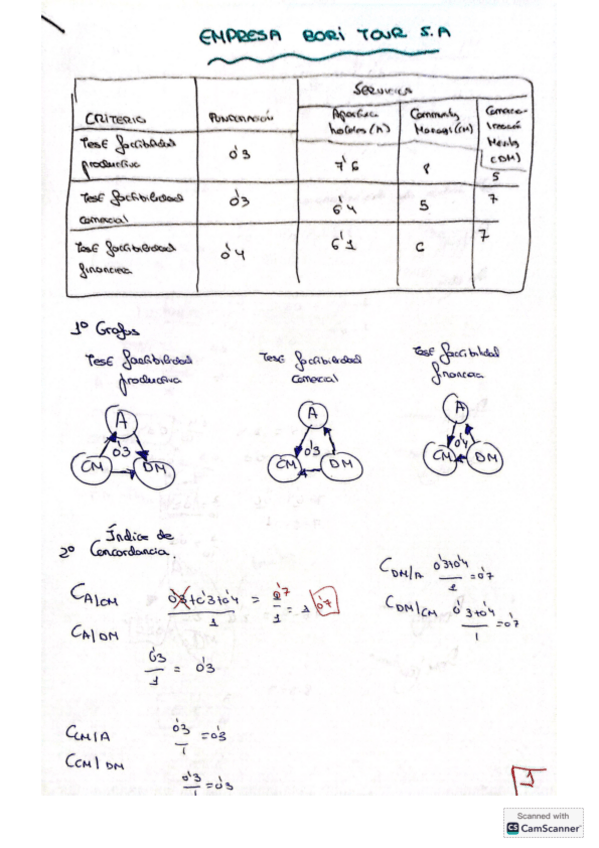 EMPRESA BORI TOUR S.A
SERVICIOS
CRITERIO PUNTUACIÓN hoteles (A) Community (CM) (DM)
Test factibilidad productiva 0'3 7'6 8 5
Test factibilidad comercial 0'3 6'4 5 7
Test factibilidad financiera 0'4 6'1 6 7
1º Grafos
Test factibilidad productiva
Test factibilidad comercial
Test factibilidad financiera
A A A
0'3 0'3 0'4
CM DM CM DM CM DM
2º Índice de Concordancia.
CA/CM 0'3+0'3+0'4 / 1 = 0'7 / 1 = 1 0'7
CA/DM
0'3 / 1 = 0'3
CCM/A 0'3 / 1 = 0'3
CCM/DM
0'3 / 1 = 0'3
CDM/A 0'3+0'4 / 1 = 0'7
CDM/CM 0'3+0'4 / 1 = 0'7
1
Scanned with
CS CamScanner